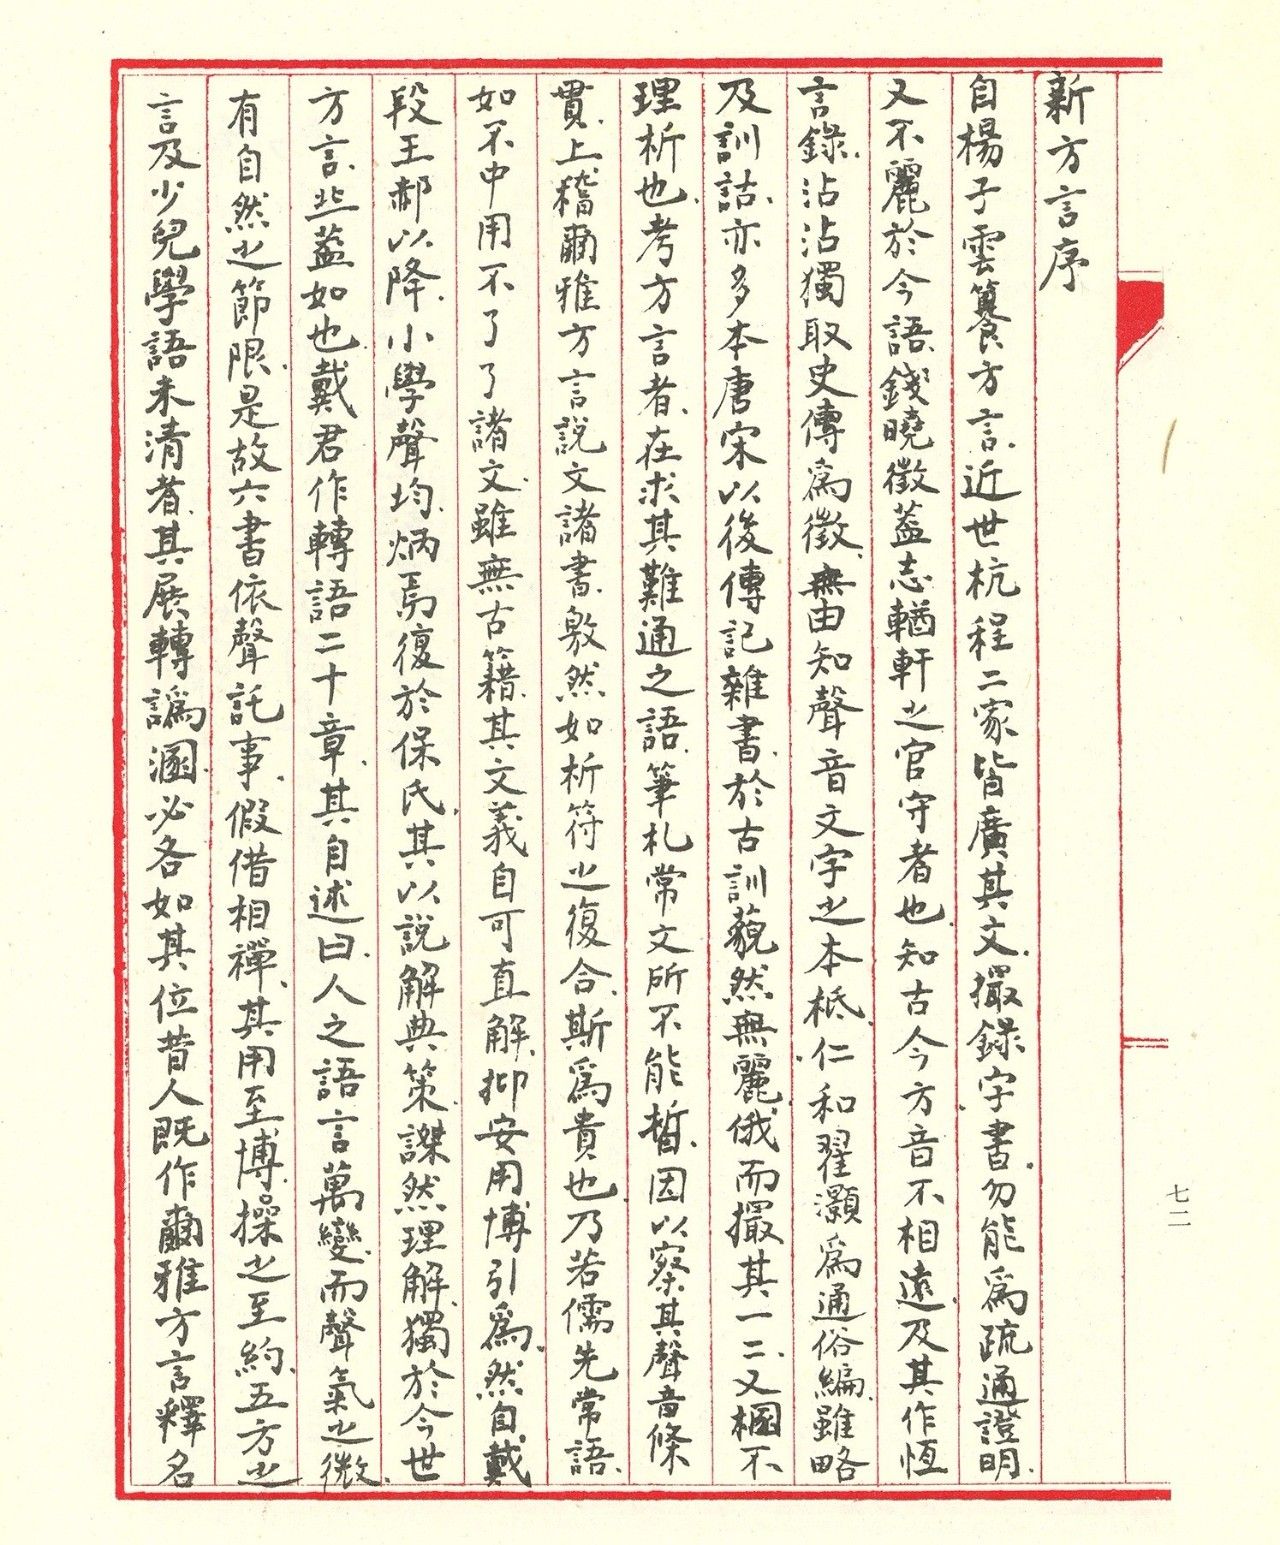 新方言序
自楊子雲籑方言、近世杭程二家皆廣其文、撮錄字書、勿能爲疏通證明、
又不麗於今語、錢曉徵葢志輶軒之官守者也、知古今方音不相遠、及其作恆
言錄、沾沾獨取史傳爲徵、無由知聲音文字之本柢、仁和翟灝爲通俗編、雖略
及訓詁、亦多本唐宋以後傳記雜書、於古訓藐然無麗、俄而撮其一二、又楓不
理析也、考方言者、在求其難通之語、筆札常文所不能晢、因以察其聲音條
貫、上稽爾雅方言說文諸書、敫然如析符之復合、斯爲貴也、乃若儒先常語、
如不中用不了了諸文、雖無古籍、其文義自可直解、抑安用博引爲、然自戴
段王郝以降、小學聲均、炳焉復於保氏、其以說解典策、謋然理解、獨於今世
方言、丠葢如也、戴君作轉語二十章、其自述曰、人之語言萬變、而聲氣之微、
有自然之節限、是故六書依聲託事、假借相禪、其用至博、操之至約、五方之
言及少兒學語未清者、其展轉譌溷、必各如其位、昔人既作爾雅方言釋名
七二